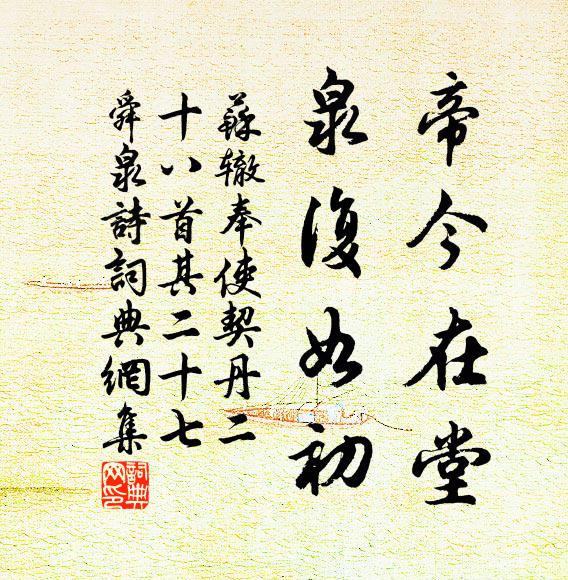 帝今在堂
泉復如初
蘇辙奉使契丹二
十八首其二十七
舜泉詩詞典網集
詞典网印